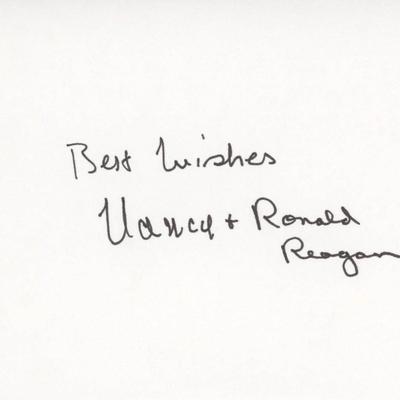 Best Wishes
Nancy + Ronald
Reagan